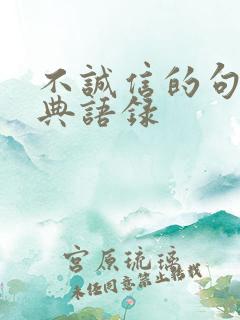 不誠信的句
典語錄
宮原琉璃
未经同意禁止转载